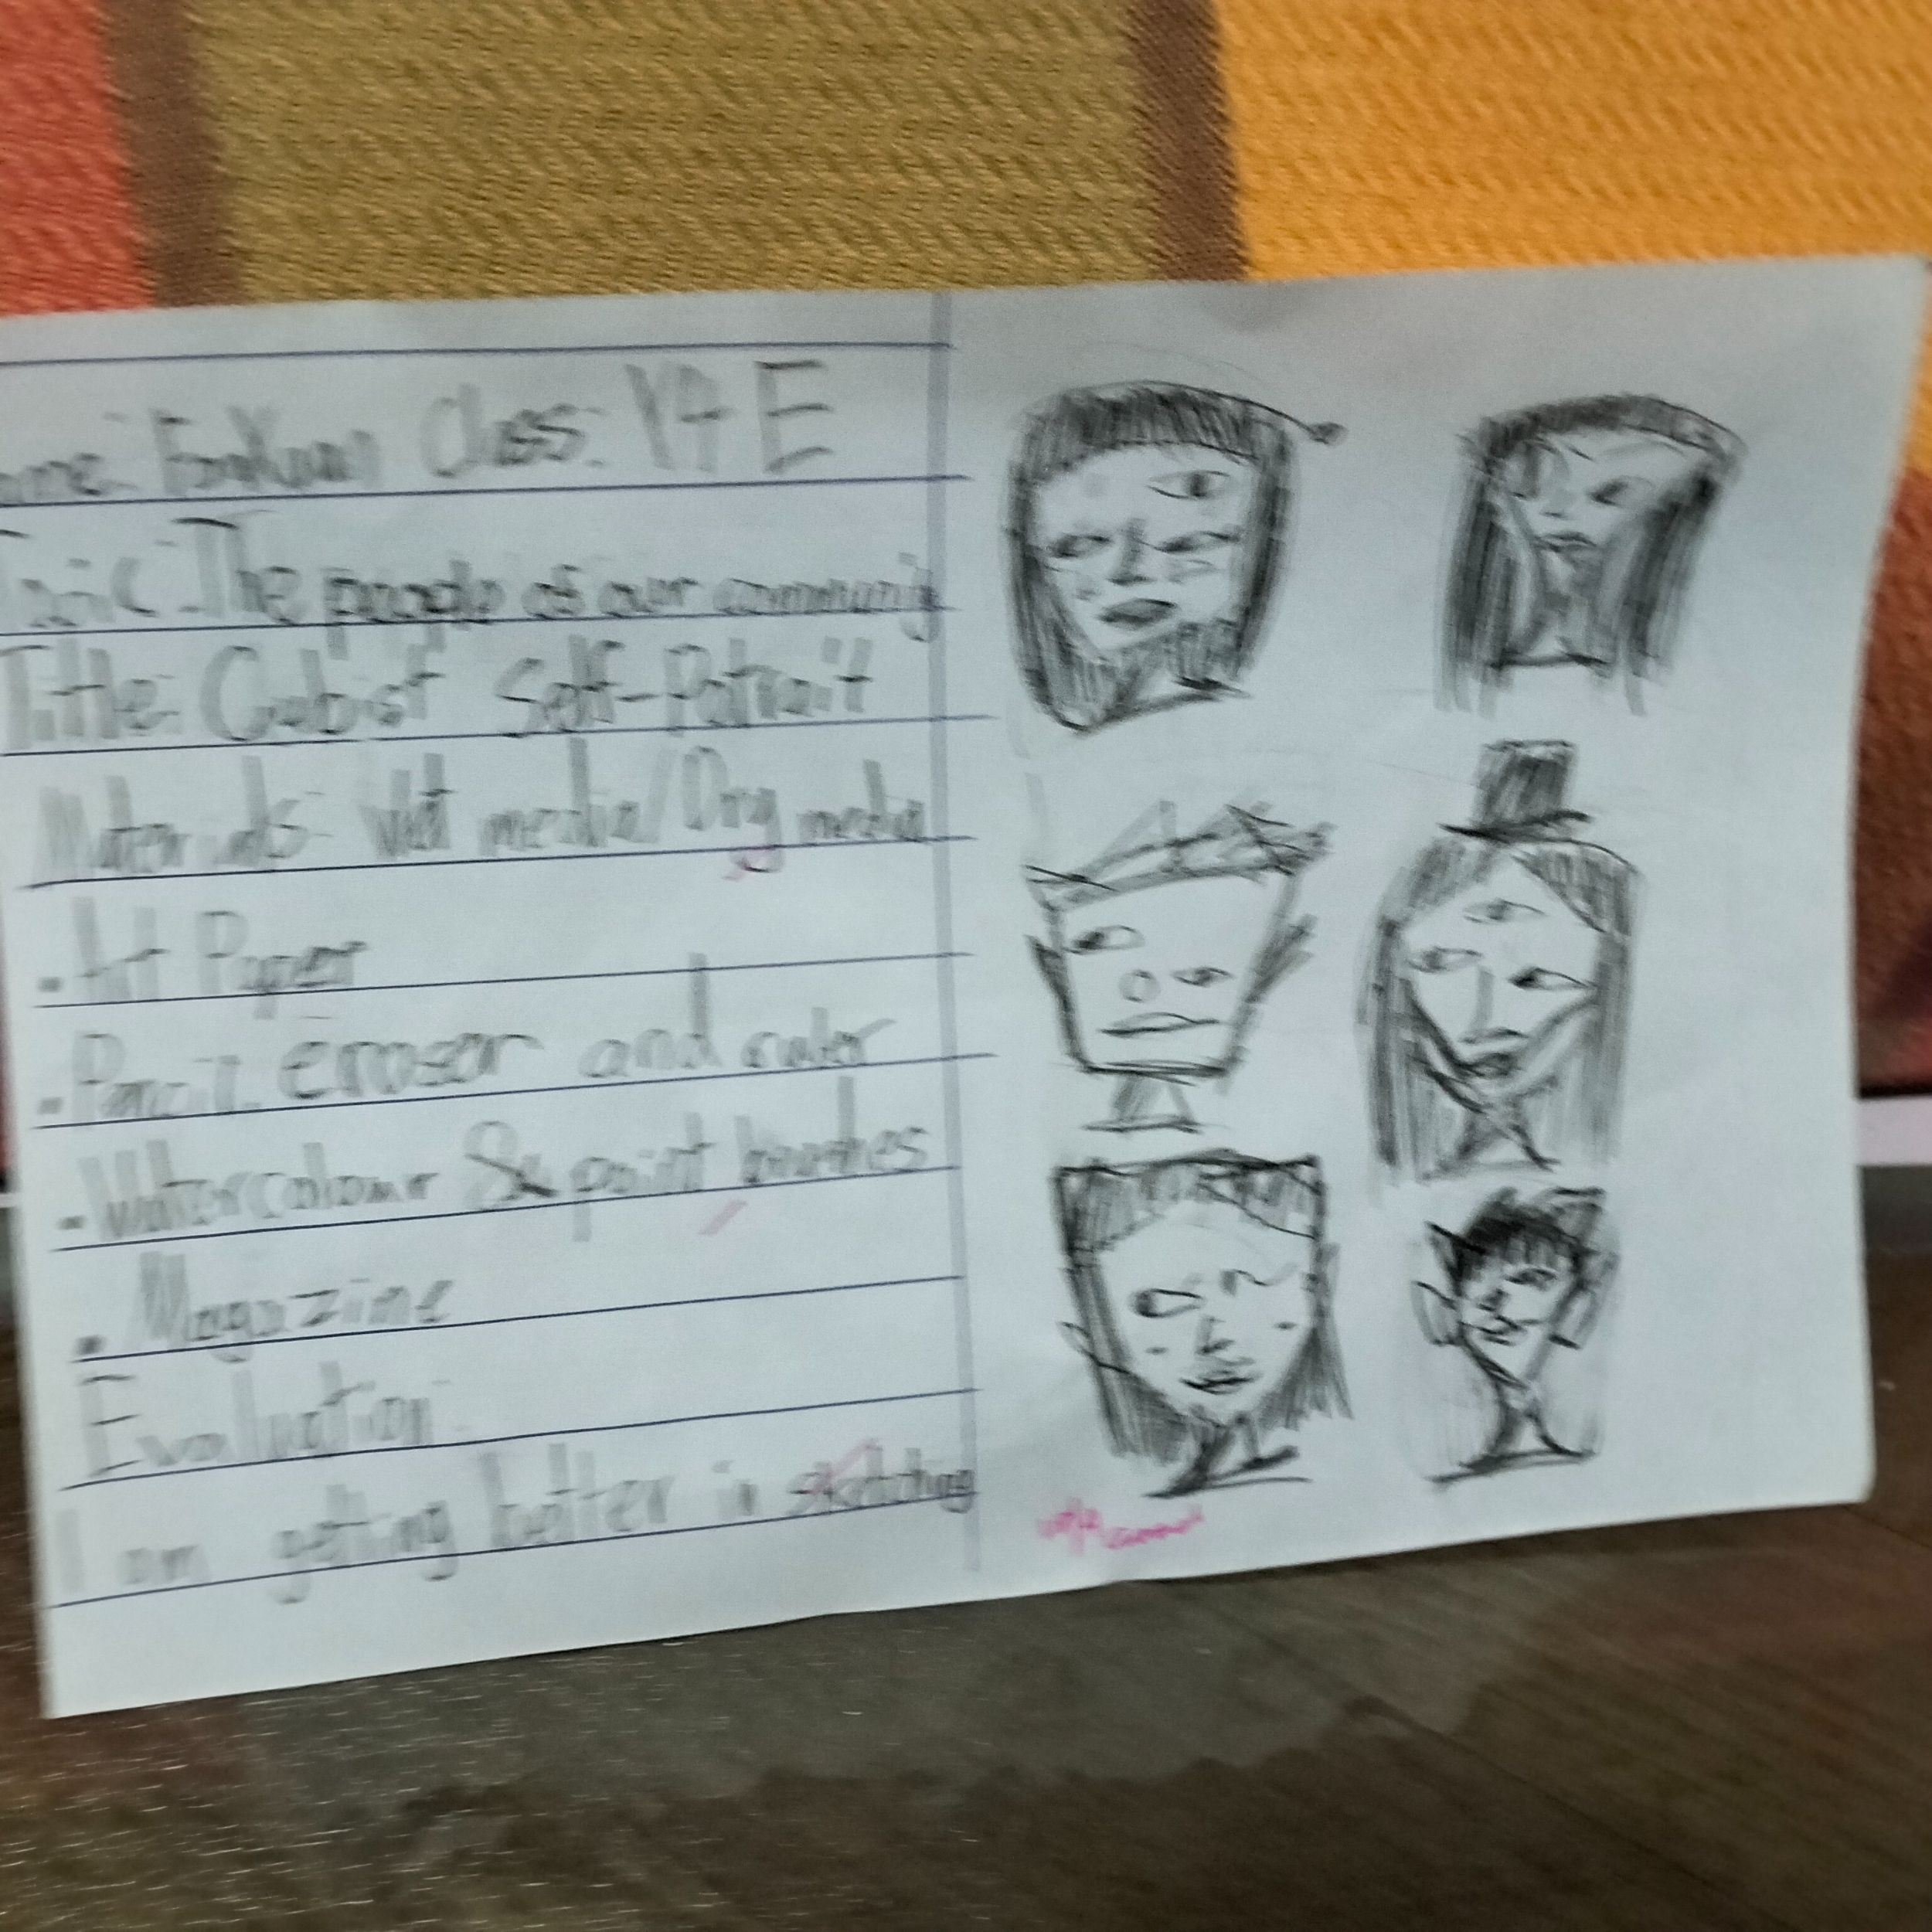 ame: FonKuan Class: Y4 E
Topic: The people of our community
Title: Cubist Self-Patrait
Materials: Wet media/Dry media
. Art Paper
. Pencil, eraser and ruler
. Watercolour & paint brushes
. Magazine
Evaluation:
I am getting better in sketching